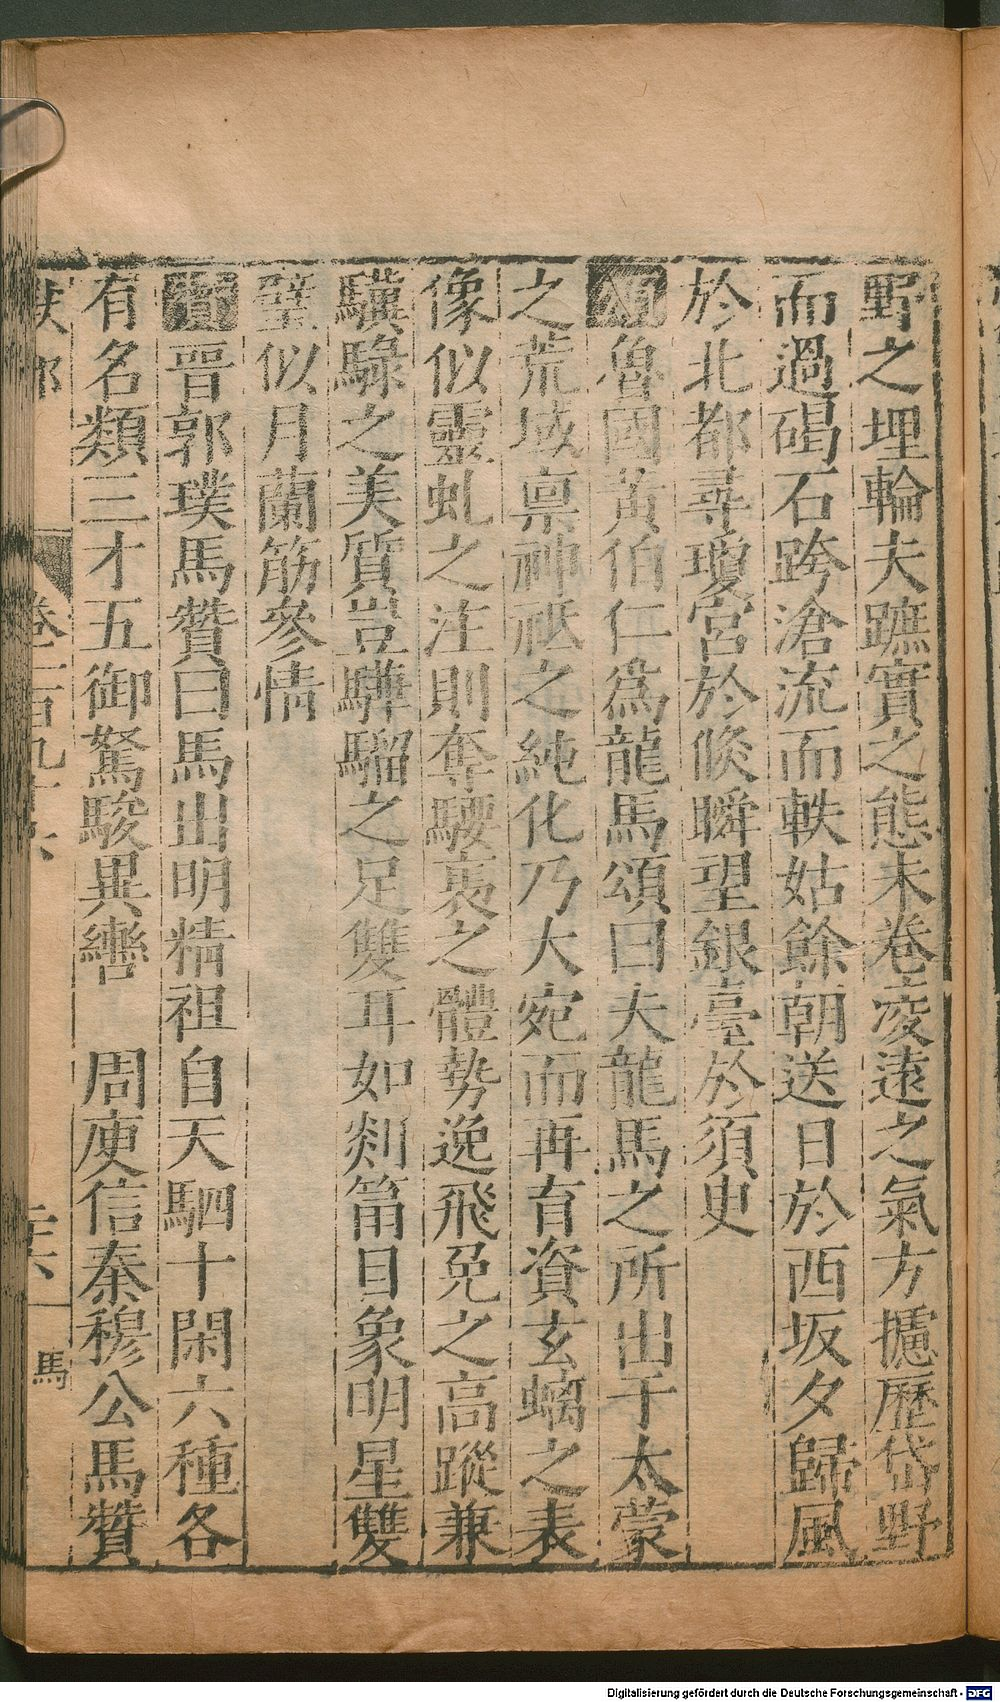 野之埋輪夫蹠實之態未卷凌遠之氣方攄歷岱野
而過碣石跨滄流而軼姑餘朝送日於西坂夕歸風
於北都尋瓊宮於倐瞬望銀臺於須史
頌魯國黃伯仁爲龍馬頌曰夫龍馬之所出于太蒙
之荒域禀神祇之純化乃大宛而再育資玄螭之表
像似靈虬之注則奪騕褭之體勢逸飛兔之高蹤兼
驥騄之美質豈驊騮之足雙耳如剡筩目象明星雙
璧似月蘭筋參情
賛晋郭璞馬贊曰馬出明精祖自天駟十閑六種各
有名類三才五御駑駿異轡　周庾信秦穆公馬贊
獸部 卷一百九十六 二十六 馬
Digitalisierung gefördert durch die Deutsche Forschungsgemeinschaft - DFG